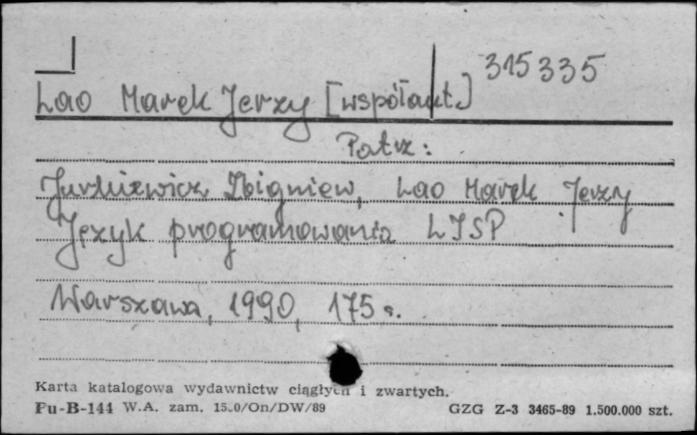 315335
Lao Marek Jerzy [współaut.]
Patrz:
Jurkiewicz Zbigniew, Lao Marek Jerzy
Język programowania LISP
Warszawa, 1990, 175 s.
Karta katalogowa wydawnictw ciągłych i zwartych.
Pu-B-144 W.A. zam. 15.0/On/DW/89 GZG Z-3 3465-89 1.500.000 szt.